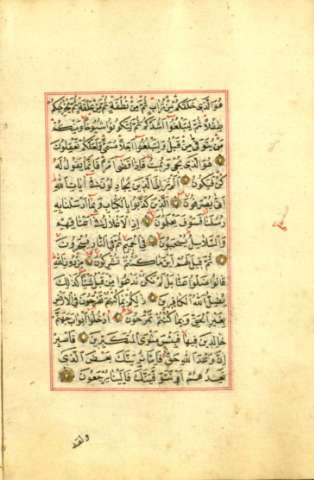 هُوَ الَّذِي خَلَقَكُمْ مِنْ تُرَابٍ ثُمَّ مِنْ نُطْفَةٍ ثُمَّ مِنْ عَلَقَةٍ ثُمَّ يُخْرِجُكُمْ
طِفْلًا ثُمَّ لِتَبْلُغُوا اَشُدَّكُمْ ثُمَّ لِتَكُونُوا شُيُوخًا وَمِنْكُمْ
مَنْ يُتَوَفَّى مِنْ قَبْلُ وَلِتَبْلُغُوا اَجَلًا مُسَمًّى وَلَعَلَّكُمْ تَعْقِلُونَ
هُوَ الَّذِي يُحْيِي وَيُمِيتُ فَاِذَا قَضَى اَمْرًا فَاِنَّمَا يَقُولُ لَهُ
كُنْ فَيَكُونُ اَلَمْ تَرَ اِلَى الَّذِينَ يُجَادِلُونَ فِي اٰيَاتِ اللّٰهِ
اَنَّى يُصْرَفُونَ اَلَّذِينَ كَذَّبُوا بِالْكِتَابِ وَبِمَا اَرْسَلْنَا بِهِ
رُسُلَنَا فَسَوْفَ يَعْلَمُونَ اِذِ الْاَغْلَالُ فِي اَعْنَاقِهِمْ
وَالسَّلَاسِلُ يُسْحَبُونَ فِي الْحَمِيمِ ثُمَّ فِي النَّارِ يُسْجَرُونَ
ثُمَّ قِيلَ لَهُمْ اَيْنَ مَا كُنْتُمْ تُشْرِكُونَ مِنْ دُونِ اللّٰهِ
قَالُوا ضَلُّوا عَنَّا بَلْ لَمْ نَكُنْ نَدْعُوا مِنْ قَبْلُ شَيْئًا كَذٰلِكَ
يُضِلُّ اللّٰهُ الْكَافِرِينَ ذٰلِكُمْ بِمَا كُنْتُمْ تَفْرَحُونَ فِي الْاَرْضِ
بِغَيْرِ الْحَقِّ وَبِمَا كُنْتُمْ تَمْرَحُونَ اُدْخُلُوا اَبْوَابَ جَهَنَّمَ
خَالِدِينَ فِيهَا فَبِئْسَ مَثْوَى الْمُتَكَبِّرِينَ فَاصْبِرْ
اِنَّ وَعْدَ اللّٰهِ حَقٌّ فَاِمَّا نُرِيَنَّكَ بَعْضَ الَّذِي
نَعِدُهُمْ اَوْ نَتَوَفَّيَنَّكَ فَاِلَيْنَا يُرْجَعُونَ
ولقد